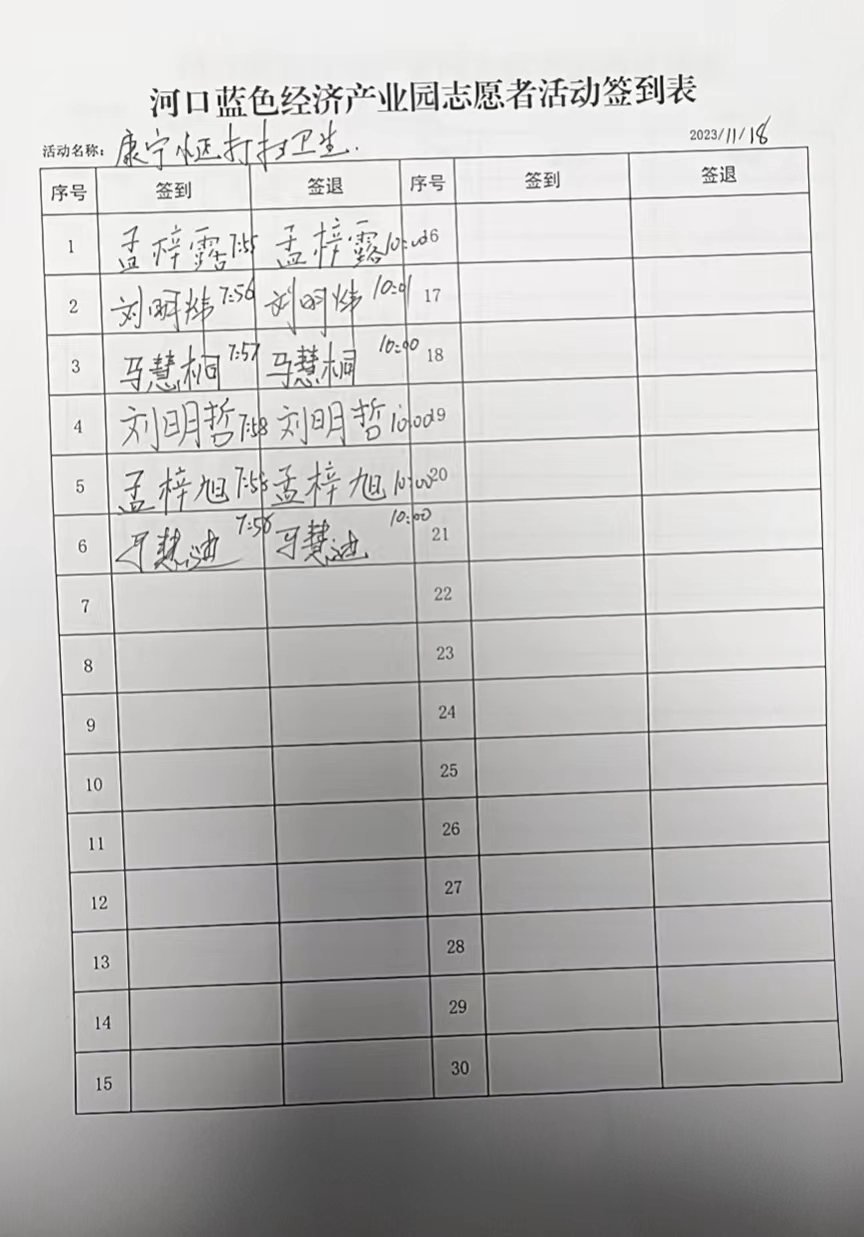 河口蓝色经济产业园志愿者活动签到表
活动名称：康宁 打扫卫生. 2023/11/18
序号 签到 签退 序号 签到 签退
1 孟梓露 7:55 孟梓露 10:00 16
2 刘明炜 7:56 刘明炜 10:01 17
3 马慧桐 7:57 马慧桐 10:00 18
4 刘明哲 7:58 刘明哲 10:00 19
5 孟梓旭 7:55 孟梓旭 10:00 20
6 马慧迪 7:56 马慧迪 10:00 21
7 22
8 23
9 24
10 25
11 26
12 27
13 28
14 29
15 30